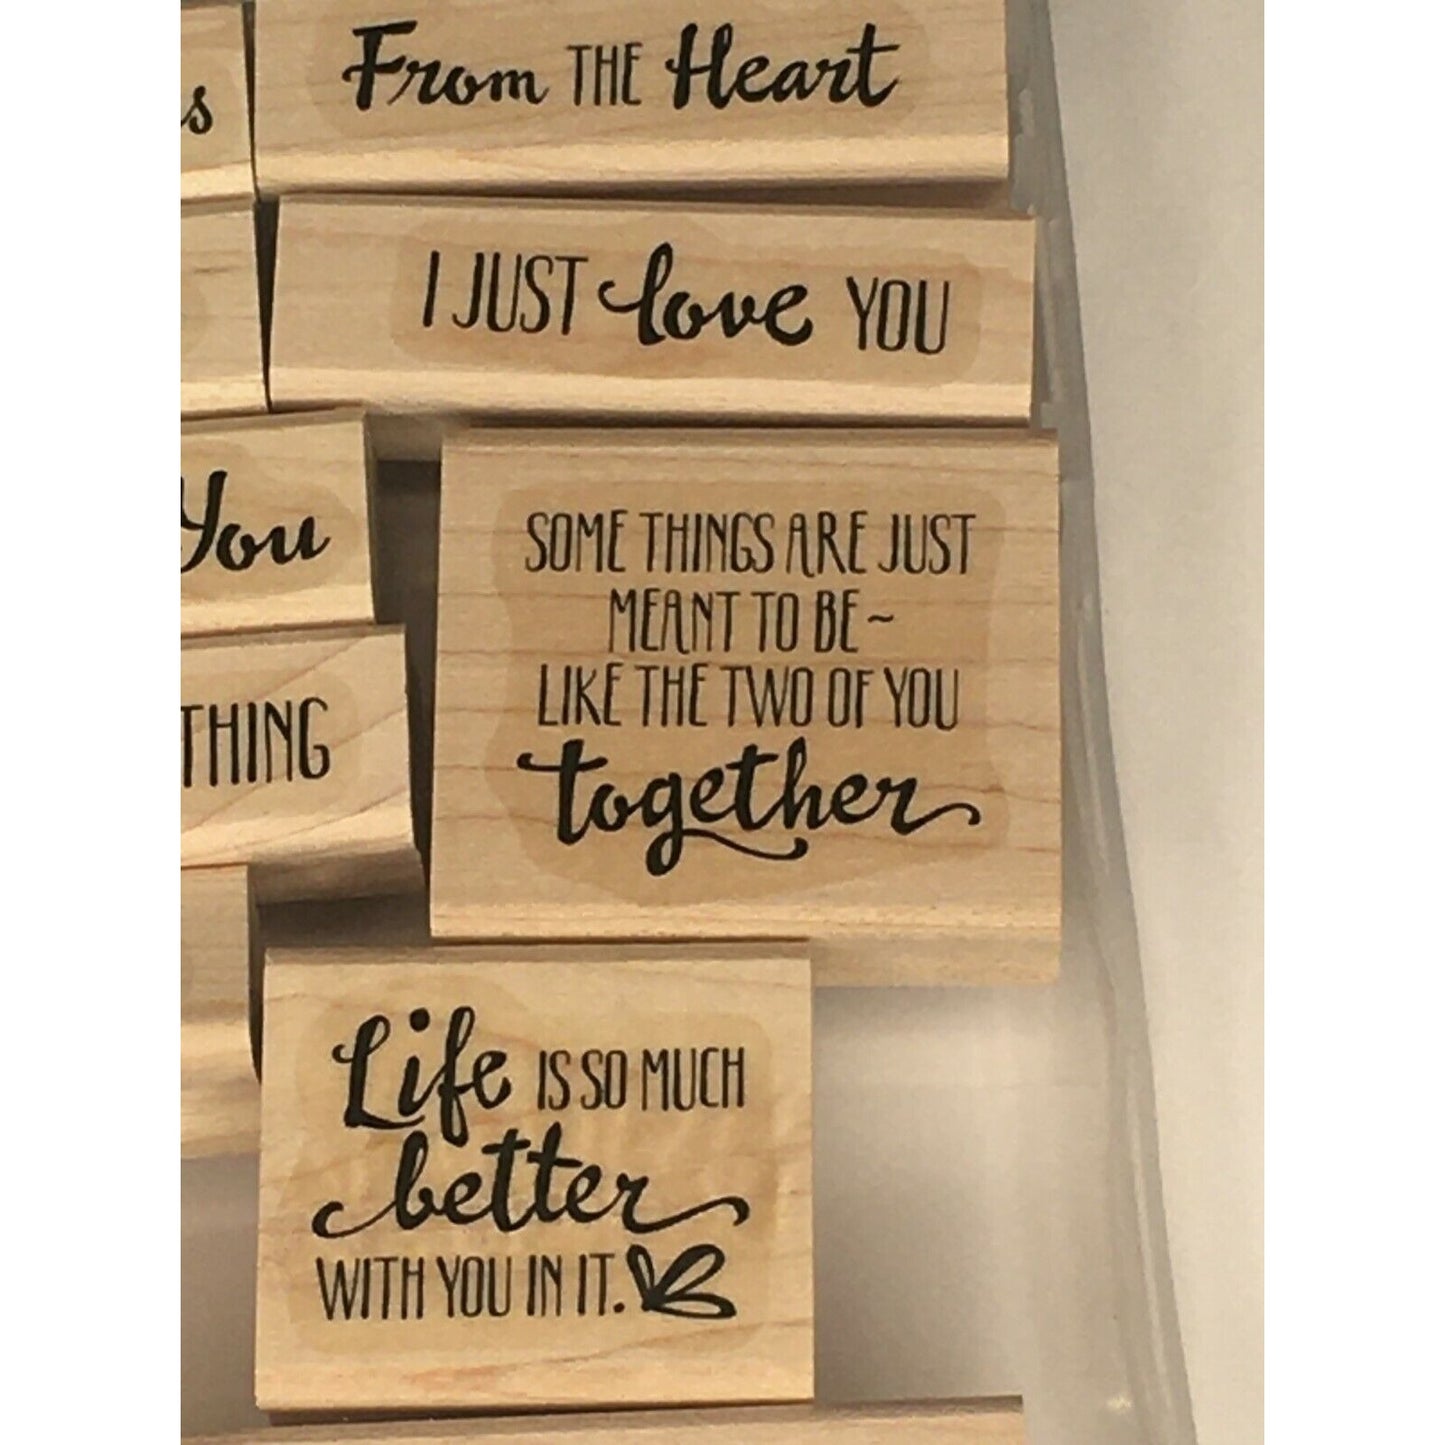 s
From THE Heart
I JUST love YOU
You
THING
SOME THINGS ARE JUST
MEANT TO BE ~
LIKE THE TWO OF YOU
together
Life IS SO MUCH
better
WITH YOU IN IT.